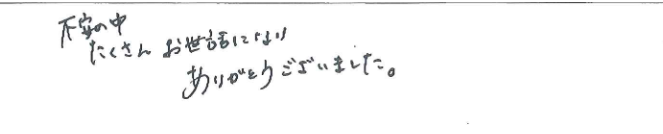 不安の中
たくさん お世話になり
ありがとうございました。